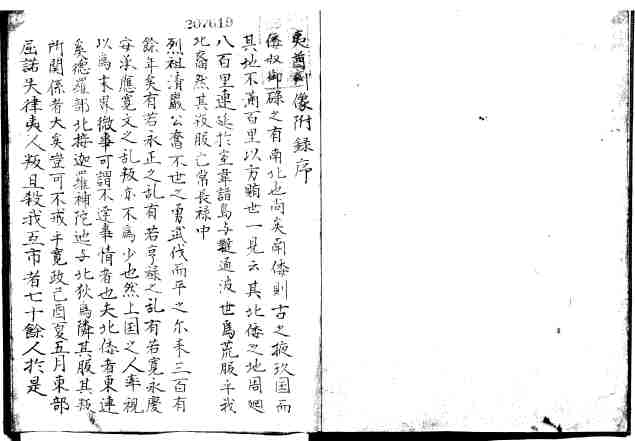 207619
夷酋列像附録序
倭奴御碌之有南北也尚矣南倭則古之掖玖国而
其地不滿百里以方顆世一見云其北倭之地周廻
八百里連延於室韋諸島与韃通波世為荒服乎我
北裔然其夜服亡常長禄中
烈祖清巖公奮不世之勇武伐而平之尓来三百有
餘年矣有若永正之乱有若亨禄之乱有若寛永慶
安漢應寛文之乱叛亦不為少也然上国之人率視
以為末界微事可謂不達事情者也夫北倭者東連
矣德羅部北接迦羅神陀地与北狄為隣其服其叛
所関係者大矣豈可不戒乎寛政己酉夏五月東部
屈諾失律夷人叛且殺我互市者七十餘人於是